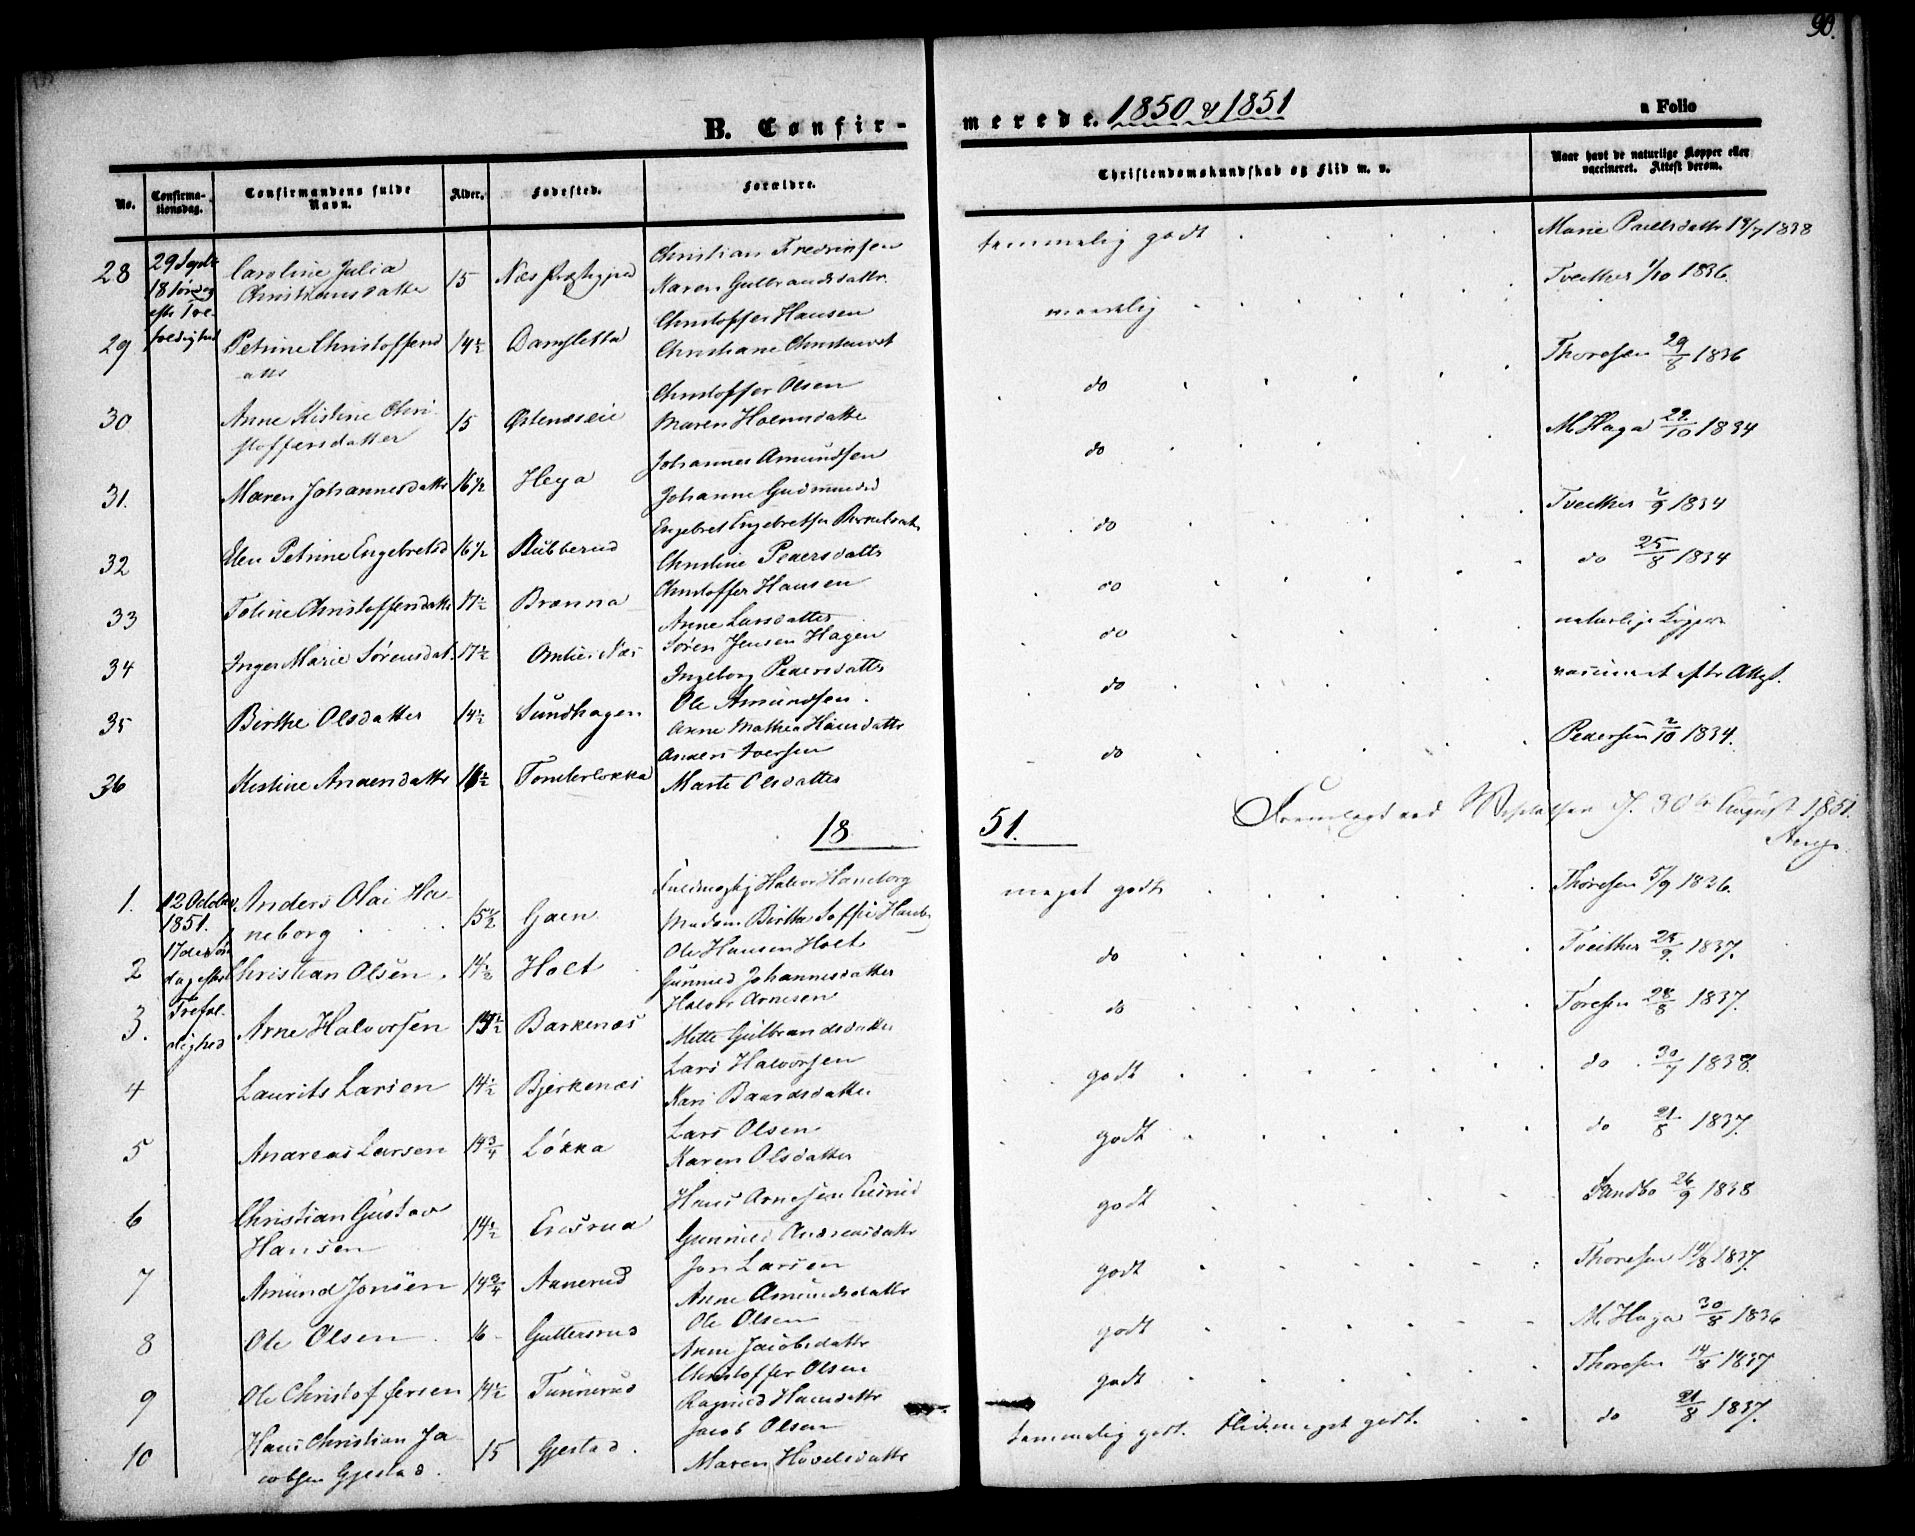 90.
B. Confirmerede. 1850 & 1851
a Folio
No. Confirmationsdag. Confirmandens fulde Navn. Alder. Fødested. Forældre. Christendomskundskab og Flid m. v. Naar havt de naturlige Kopper eller vaccineret. Attest derom.
28 29 Septr 18 Søndag eftr Trefoldighed Caroline Julia Christiansdatter 15 Næs Christian Fredriksen Karen Gulbrandsdattr. temmelig godt Marie Paulsdattr 19/7 1838
29 Petrine Christoffersdattr 14½ Damsletta Christoffer Hansen Christiane Christensdt maadelig Tveither 1/10 1836.
30 Anne Kistine Christoffersdatter 15 Østenseie Christoffer Olsen Maren Holmsdatter do Thoresen 29/8 1836
31. Maren Johannesdattr 16½ Heya Johannes Amundsen Johanne Gudmundsd do M Haga 22/10 1834
32 Elen Petrine Engebretsd 16½ Bubberud Engebret Engebretsen Christine Pedersdattr do Tveither 2/9 1834
33 Toline Christoffersdattr 17½ Brænna Christoffer Hansen Anne Larsdatter do do 25/8 1834
34 Inger Marie Sørensdat. 17½ Næs Søren Jensen Hagen Ingeborg Pedersdattr do naturlige Kopper
35 Birthe Olsdatter 14½ Sundhagen Ole Amundsen. Anne Mathea Hansdattr do vaccineret eftr Attest.
36 Kistine Andersdattr 16½ Tomterløkka Anders Iversen Marte Olsdatter do Pedersen 2/10 1834.
1851.
Fremlagt ved 30te August 1851.
1. 12 October 1851. 17de Søndag eftr Trefoldighed Anders Olai Haneborg 15½ Gaen Fuldmægtig Halvor Haneborg Madam Birthe Soffie Haneb meget godt Thoresen 5/9 1836.
2 Christian Olsen. 14½ Holt Ole Hansen Holt Gunnild Johannesdatter do Tveither 25/9 1837.
3. Arne Halvorsen 14½ Barkenæs Halvor Arnesen Mette Gulbrandsdatter do Toresen 28/8 1837.
4 Laurits Larsen 14½ Bjerkenæs Lars Halvorsen Kari Baardsdatter godt do 30/7 1838.
5 Andreas Larsen 14¾ Løkka Lars Olsen Karen Olsdatter godt do 21/8 1837.
6 Christian Gustav Hansen 14½ Eresrud Hans Arnesen Eresrud Gunnild Andreasdattr godt Sandbo 26/9 1838
7 Amund Jonsen 14¾ Aanerud Jon Larsen Anne Amundsdattr godt Thoresen 14/8 1837.
8 Ole Olsen 16 Guttersrud Ole Olsen Anne Jacobsdattr godt M Haga 30/8 1836
9 Ole Christoffersen 14½ Tunnerud Christoffer Olsen Ragnild Hansdattr godt Thoresen 14/8 1837
10 Hans Christian Jacobsen Gjestad. 15 Gjestad. Jacob Olsen Maren Hovelsdattr temmelig godt. Flid: meget godt. do 21/8 1837.